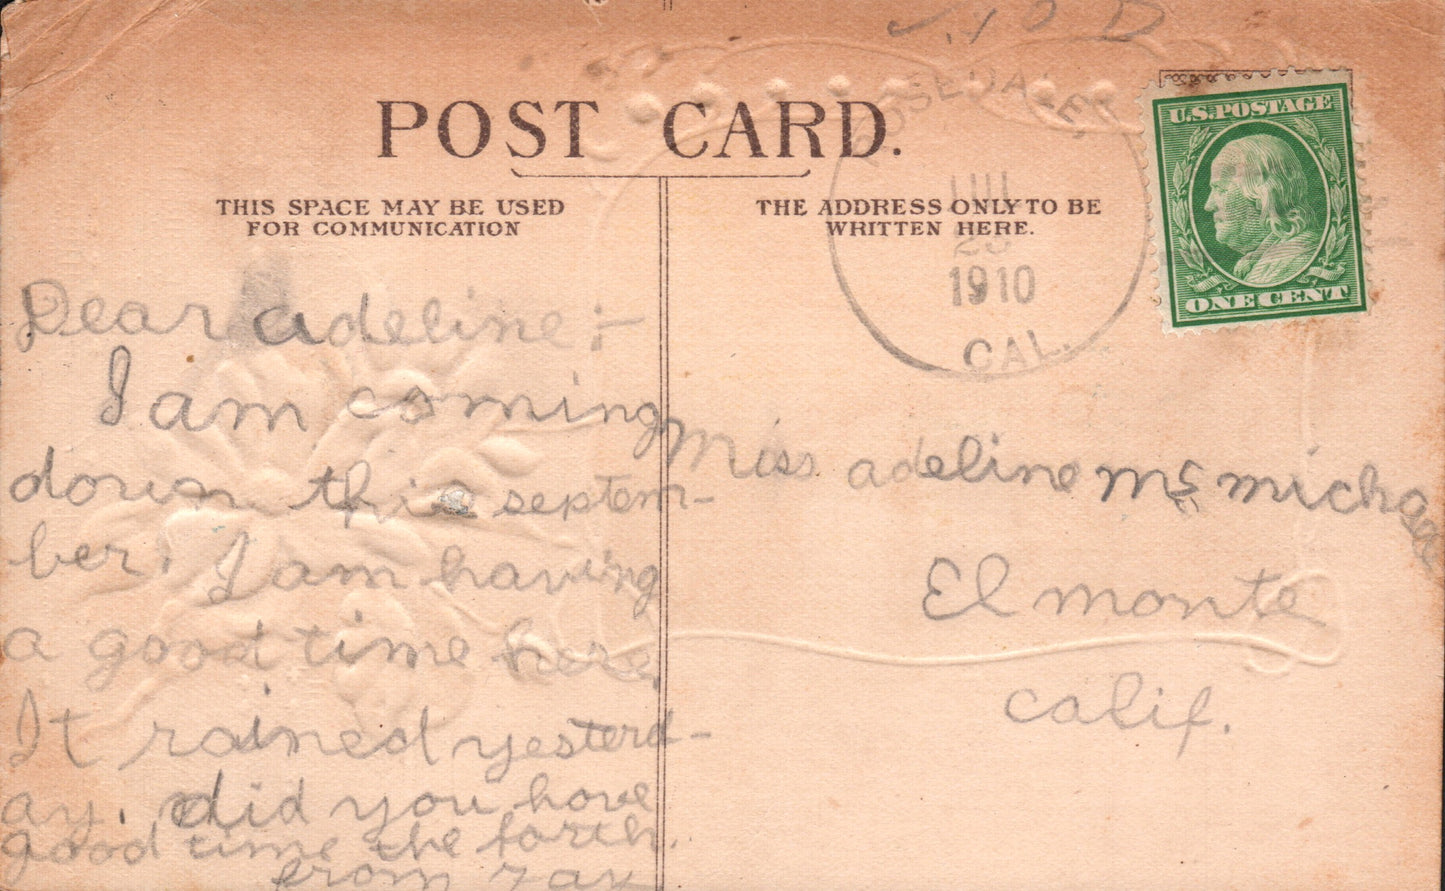 POST CARD.
THIS SPACE MAY BE USED
FOR COMMUNICATION
THE ADDRESS ONLY TO BE
WRITTEN HERE.
ROSEDALE,
JUL
1910
CAL.
U.S. POSTAGE
ONE CENT
Dear adeline :-
I am coming
down this septem-
ber. I am having
a good time here.
It rained yesterd-
ay. did you have
good time the forth.
from
Miss adeline Mc michael
El monte
calif.